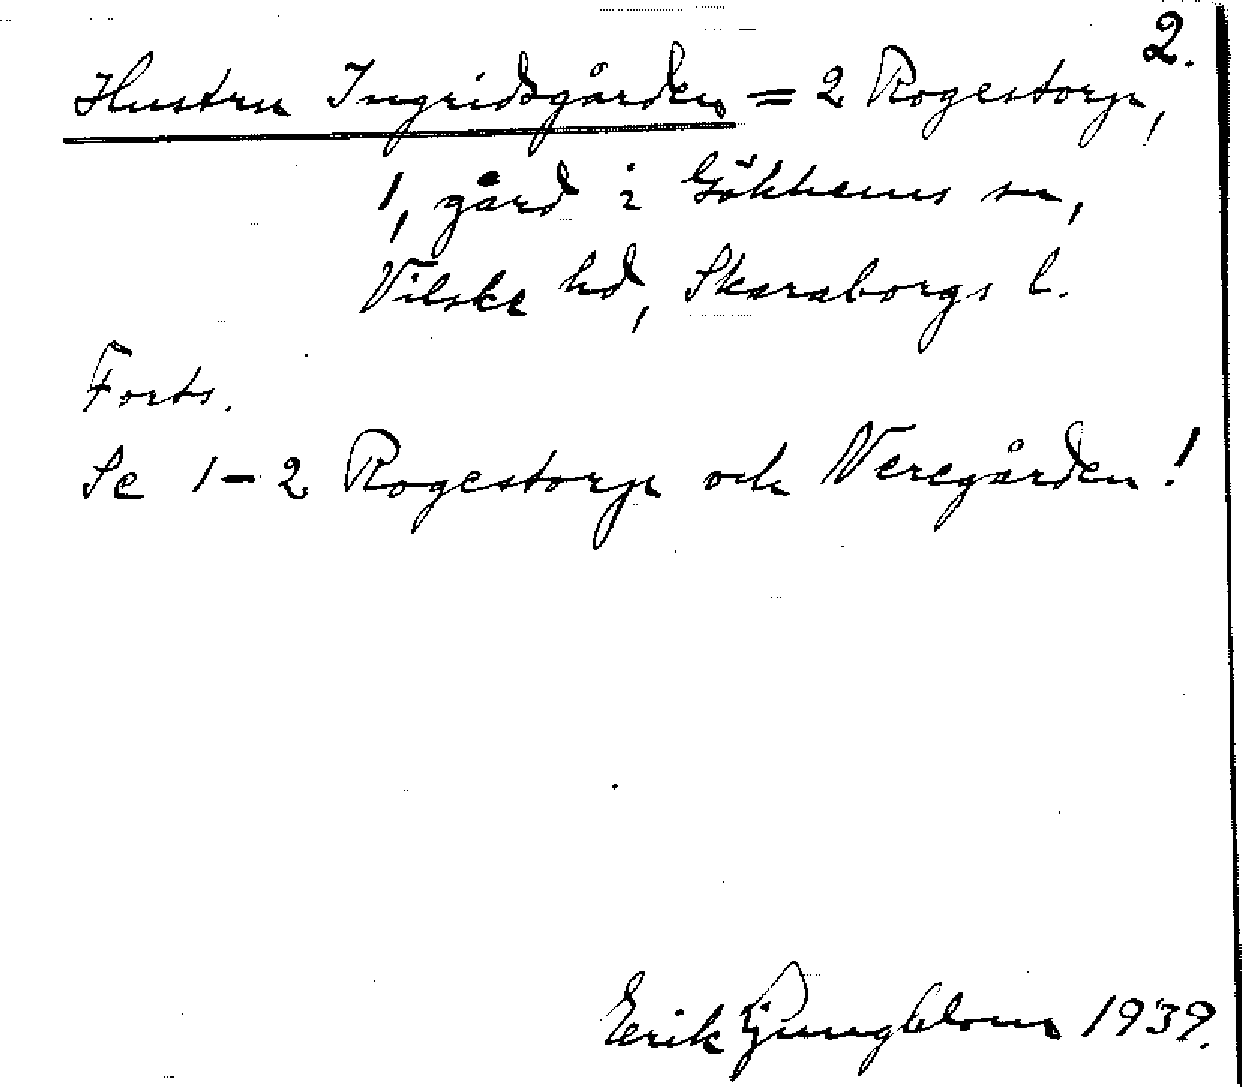 2.
Hustru Ingridsgården = 2 Rogestorp,
1, gård i Gökhems sn,
Vilske hd, Skaraborgs l.
Forts.
Se 1-2 Rogestorp och Veregården!
Erik Ljungblom 1939.